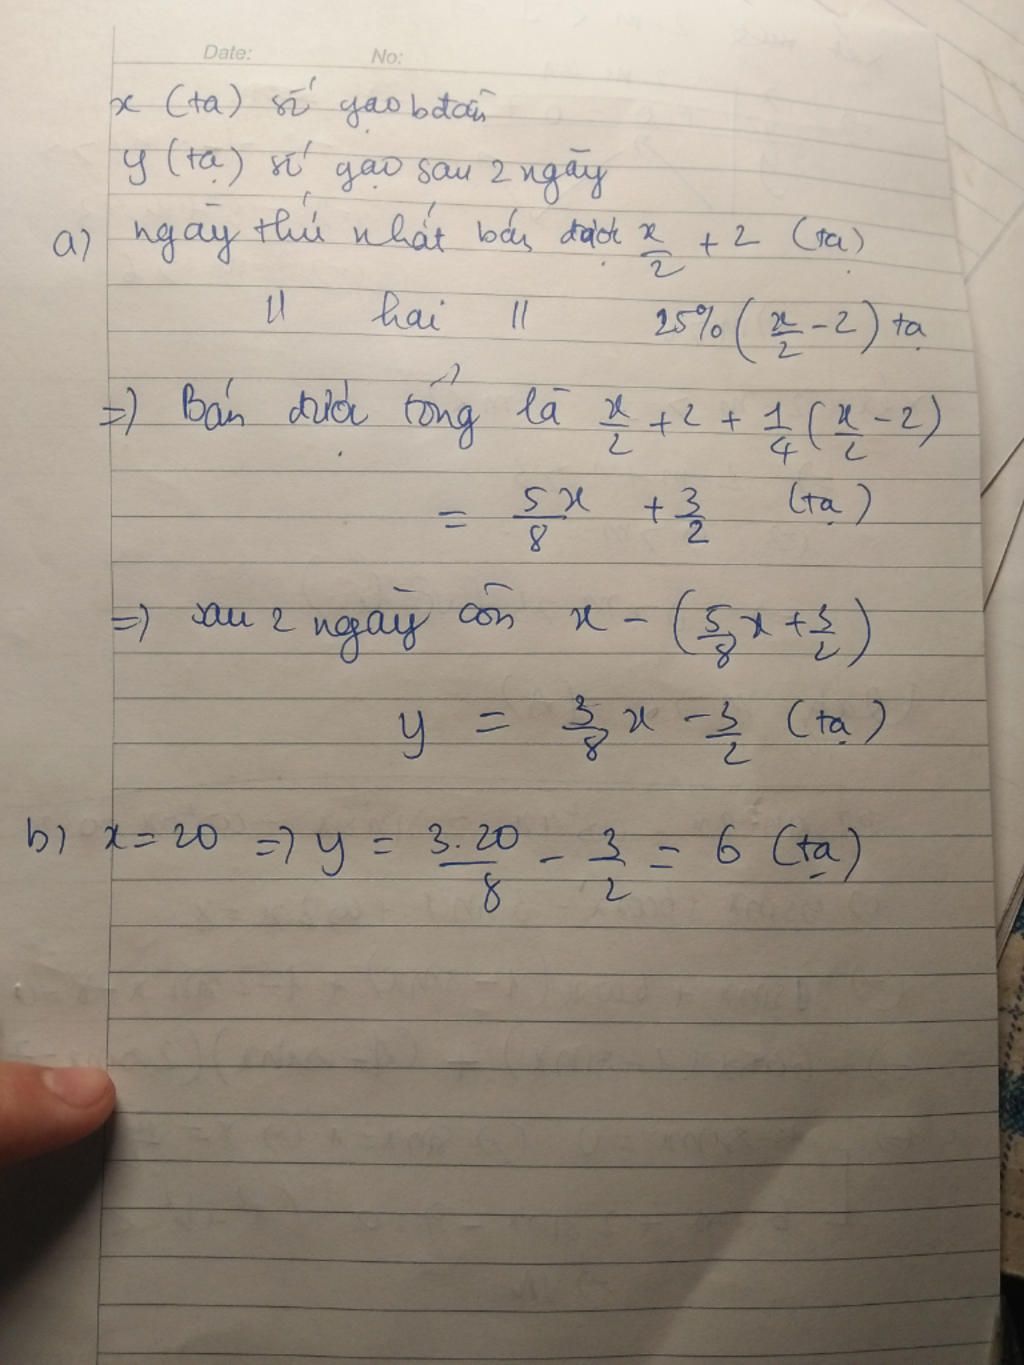 Date: No:
x (tạ) số gạo bđầu
y (tạ) số gạo sau 2 ngày
a) ngày thứ nhất bán được x/2 + 2 (tạ)
" hai " 25% (x/2 - 2) tạ
=> Bán được tổng là x/2 + 2 + 1/4 (x/2 - 2)
= 5x/8 + 3/2 (tạ)
=> sau 2 ngày còn x - (5/8 x + 3/2)
y = 3/8 x - 3/2 (tạ)
b) x = 20 => y = 3.20/8 - 3/2 = 6 (tạ)